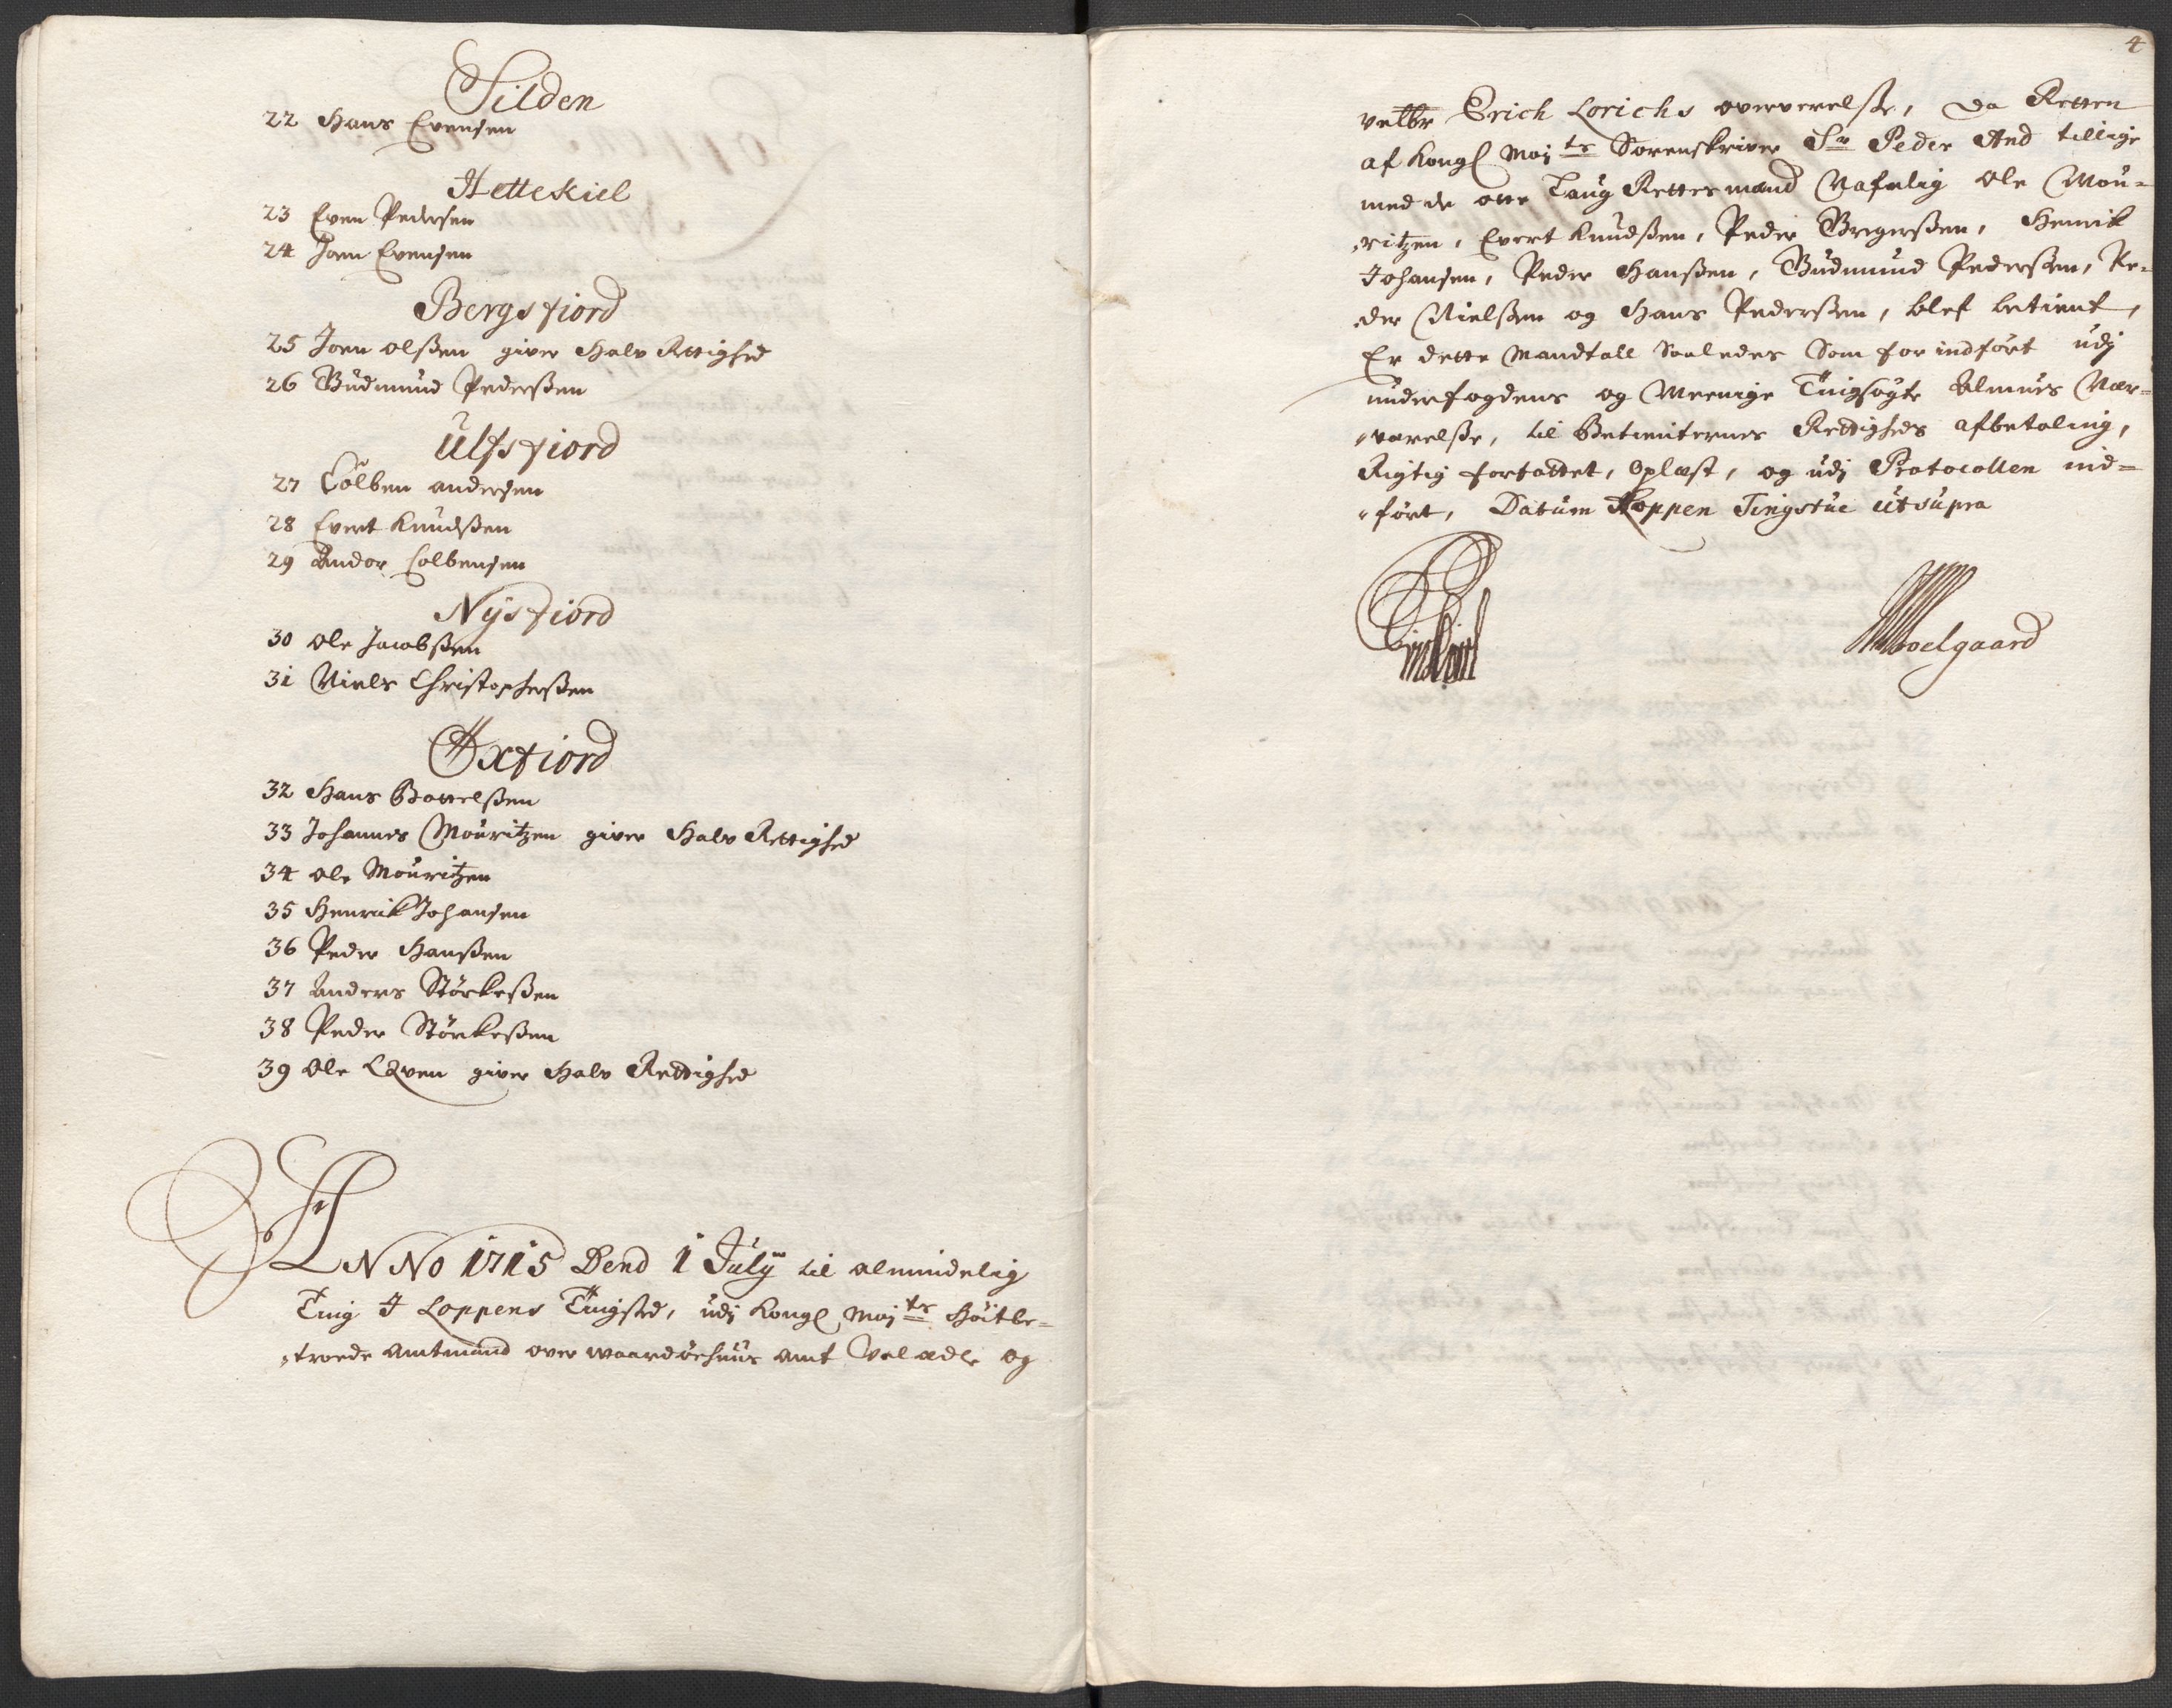 Silden
22 Hans Evensen
Hetteskiel
23 Even Pedersen
24 Joen Evensen
Bergsfiord
25 Joen olsßen giver Halv Rettighed
26 Gudmund Pedersßen
Ulfsfiord
27 Colben andersen
28 Evert Knudsßen
29 Andor Colbensen
Nÿsfiord
30 Ole Jacobsßen
31 Niels Christophersßen
Øxfiord
32 Hans Bottelsßen
33 Johannes Mouritzen giver Halv Rettighed
34 Ole Mouritzen
35 Henrik Johansen
36 Peder Hansßen
37 Anders Størkesßen
38 Peder Størkesßen
39 Ole giver Halv Rettighed
ANNo 1715 Dend 1 Julÿ til almindelig
Ting I Loppens Tingsted, udj Kongl Maj:ts Høitbe=
troede Amtmand over Waardøehuus Amt Velædle og
4
velbr Erich Lorichs oververelsße, da Retten
af Kongl Maj:ts Sorenskriver Sr Peder And tillige
med de otte Laug Rettesmænd Nafnlig Ole Mou=
ritzen, Evert Knudsßen, Peder Gregersßen, Henrik
Johansen, Peder Hansßen, Gudmund Pedersßen, Pe=
der Nielsßen og Hans Pedersßen, blef betient,
Er dette Mandtall Saaledes Som for indført udj
underfogdens og Meenige Tingsøgte Almues Nær=
værelsße, til Betienternes Rettigheds afbetaling,
Rigtig forfattet, Oplæst, og udj Protocollen ind=
ført, Datum Loppen Tingstue ut supra
Hoelgaard